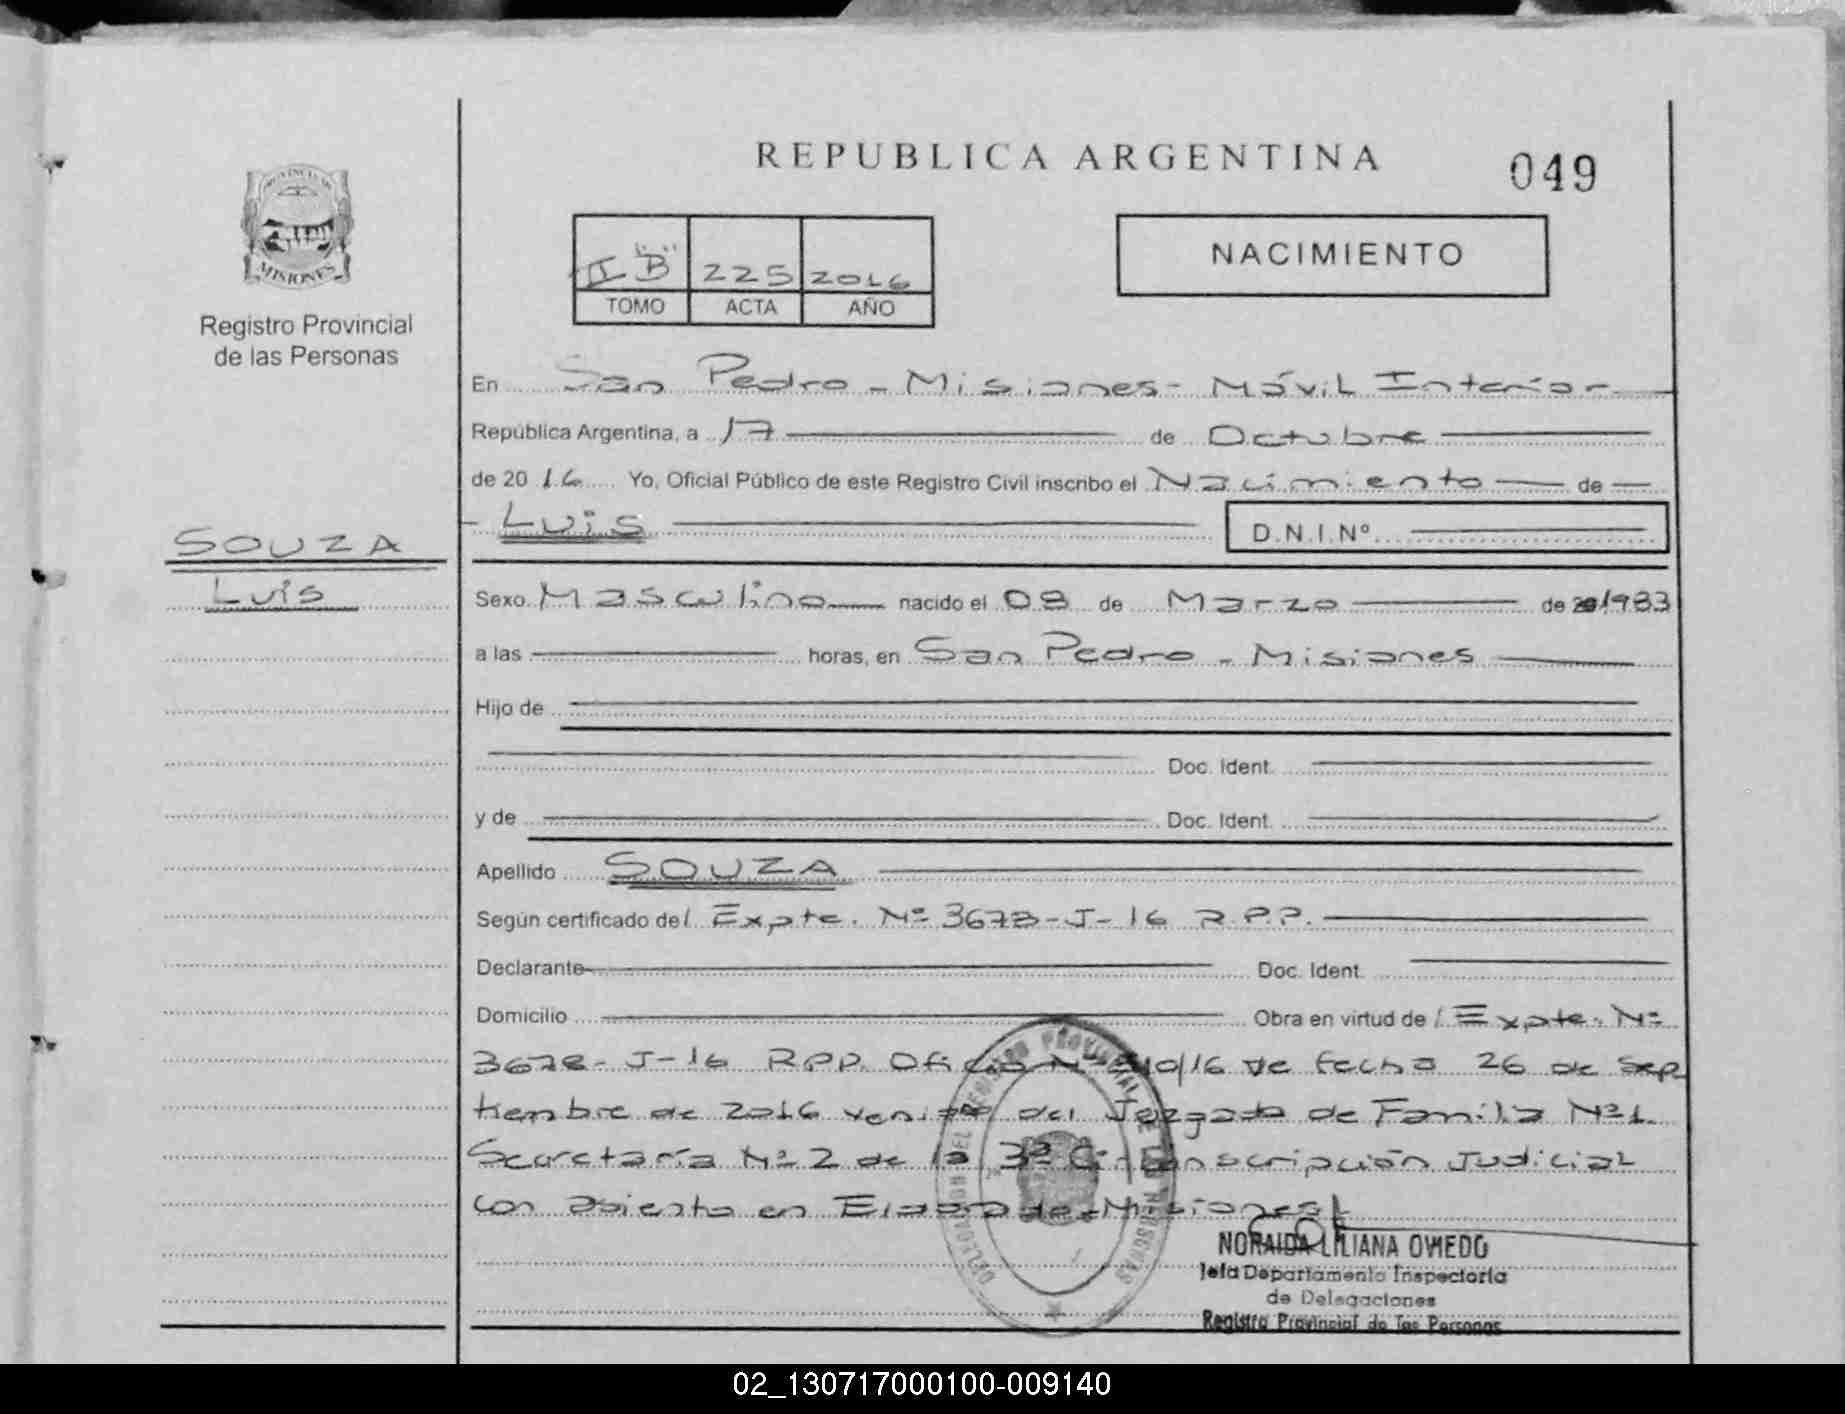 REPUBLICA ARGENTINA
049
PROVINCIA DE
MISIONES
Registro Provincial
de las Personas
II "B" 225 2016
TOMO ACTA AÑO
NACIMIENTO
En San Pedro - Misiones - Móvil Interior
República Argentina, a 17 de Octubre
de 2016 Yo, Oficial Público de este Registro Civil inscribo el Nacimiento de
Luis D.N.I.Nº
SOUZA
Luis
Sexo Masculino nacido el 08 de Marzo de 1983
a las horas, en San Pedro - Misiones
Hijo de
Doc. Ident.
y de Doc. Ident.
Apellido SOUZA
Según certificado del Expte. Nº 3678-J-16 R.P.P.
Declarante Doc. Ident.
Domicilio Obra en virtud de l Expte. Nº
3678-J-16 R.P.P. Oficio Nº 10/16 de fecha 26 de Sep
tiembre de 2016 venido del Juzgado de Familia Nº1
Secretaría Nº 2 de la 3º Circunscripción Judicial
con asiento en Eldorado-Misiones
NORAIDA LILIANA OVIEDO
Jefa Departamento Inspectoria
de Delegaciones
Registro Provincial de las Personas
DELEGACION DEL REGISTRO PROVINCIAL DE LAS PERSONAS
02_130717000100-009140